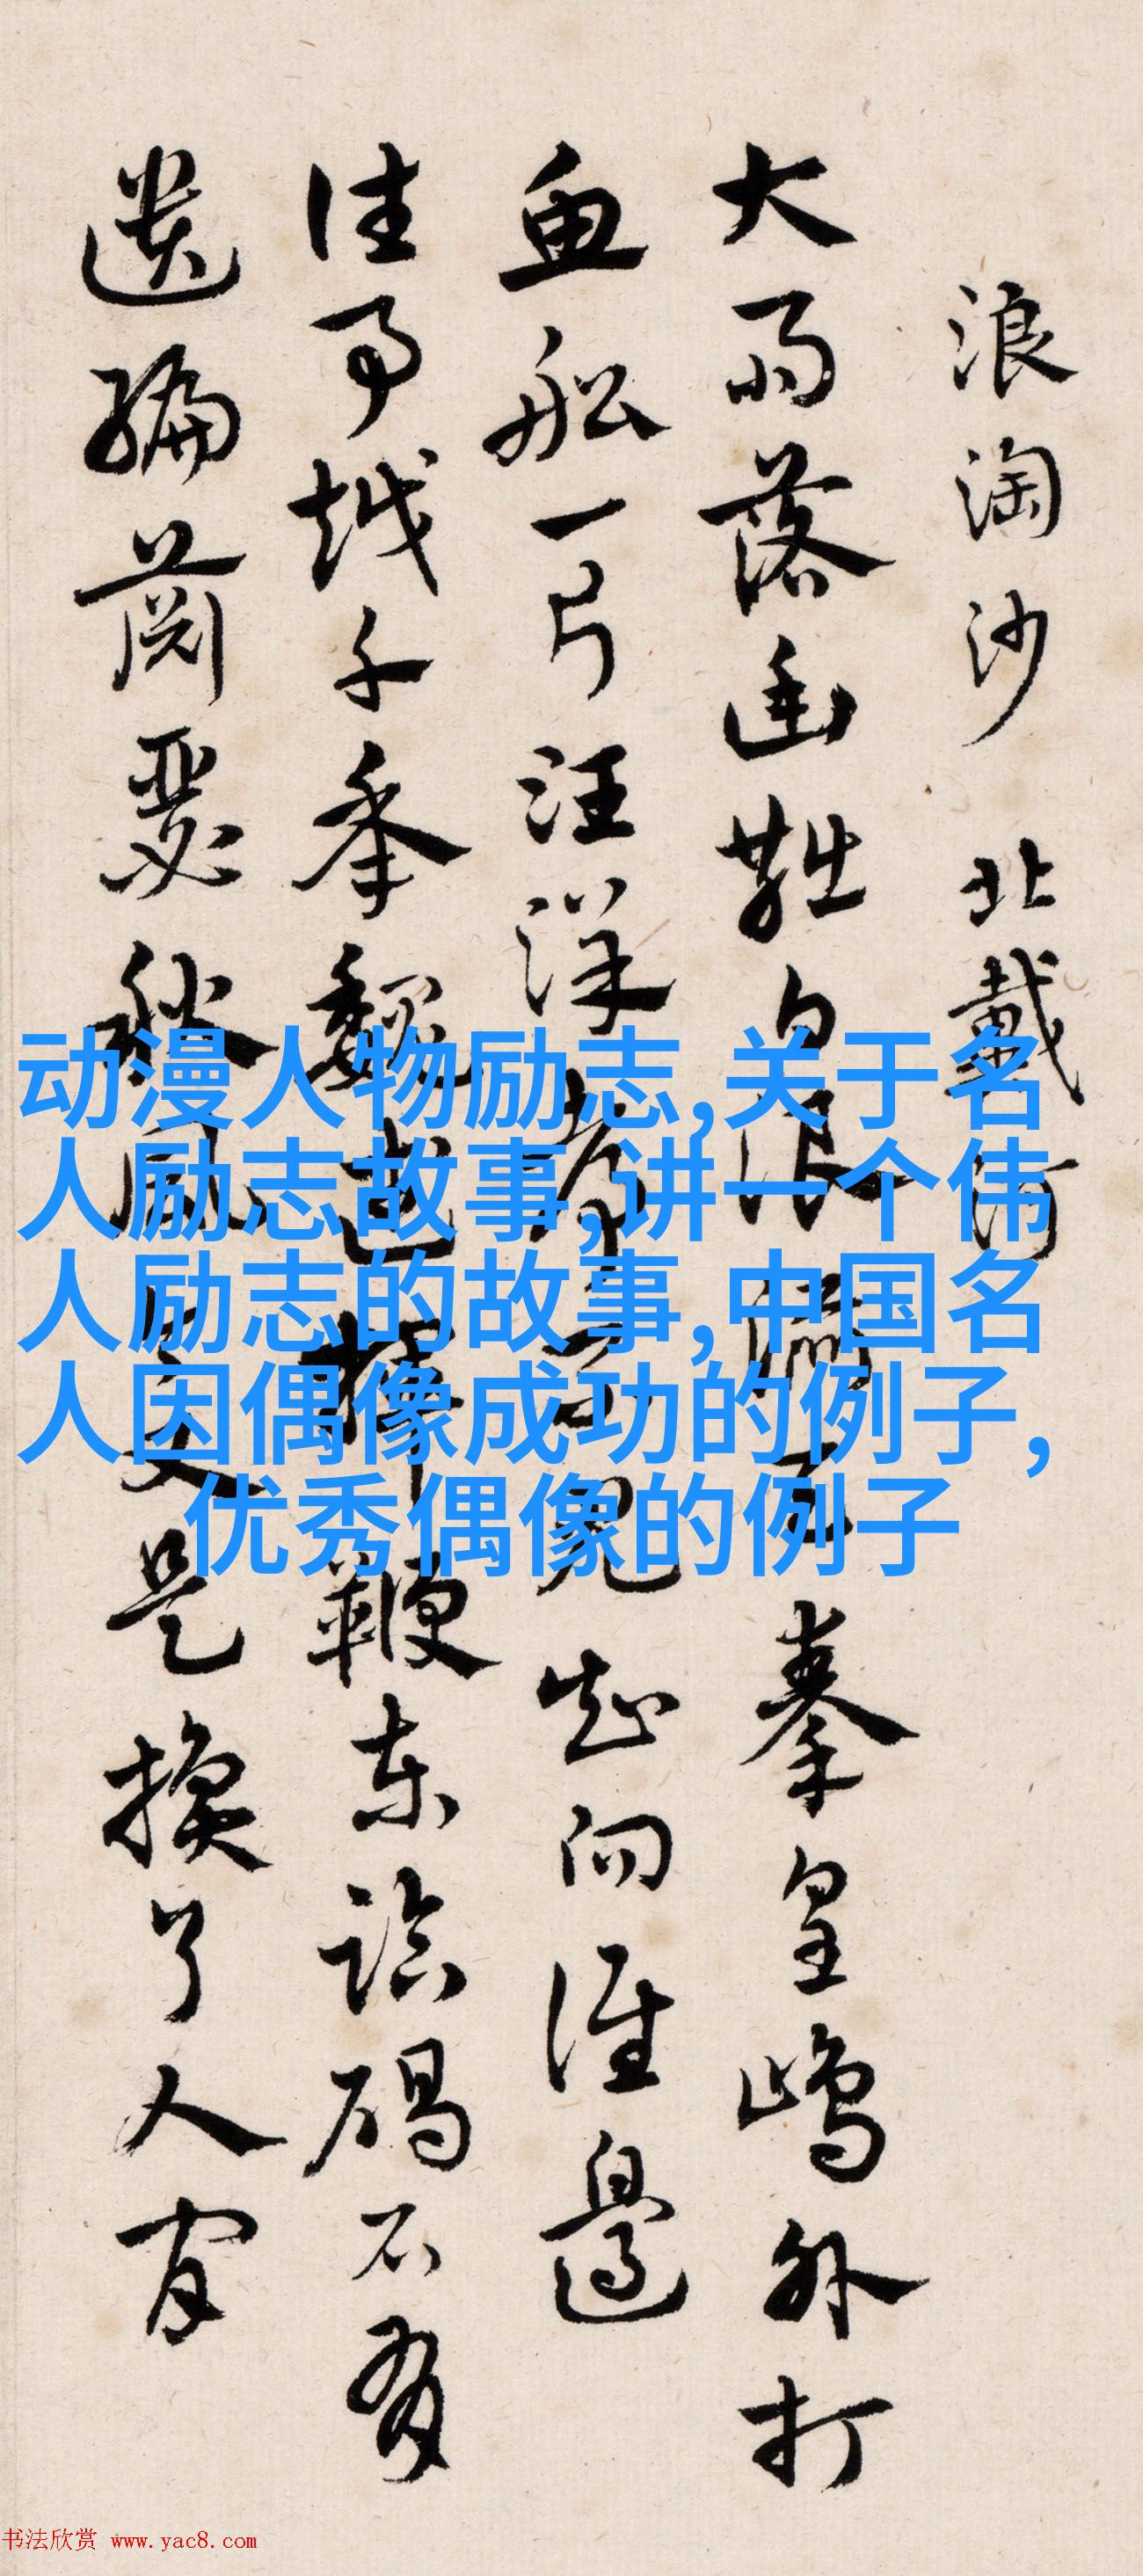 浪淘沙 北戴河
大雨落幽燕白浪滔天秦皇島外打
魚船一片汪洋都不見知向誰邊
往事越千年魏武揮鞭東臨碣石有
遺編蕭瑟秋風今又是換了人間
动漫人物励志,关于名
人励志故事,讲一个伟
人励志的故事,中国名
人因偶像成功的例子,
优秀偶像的例子
书法欣赏 www.yac8.com